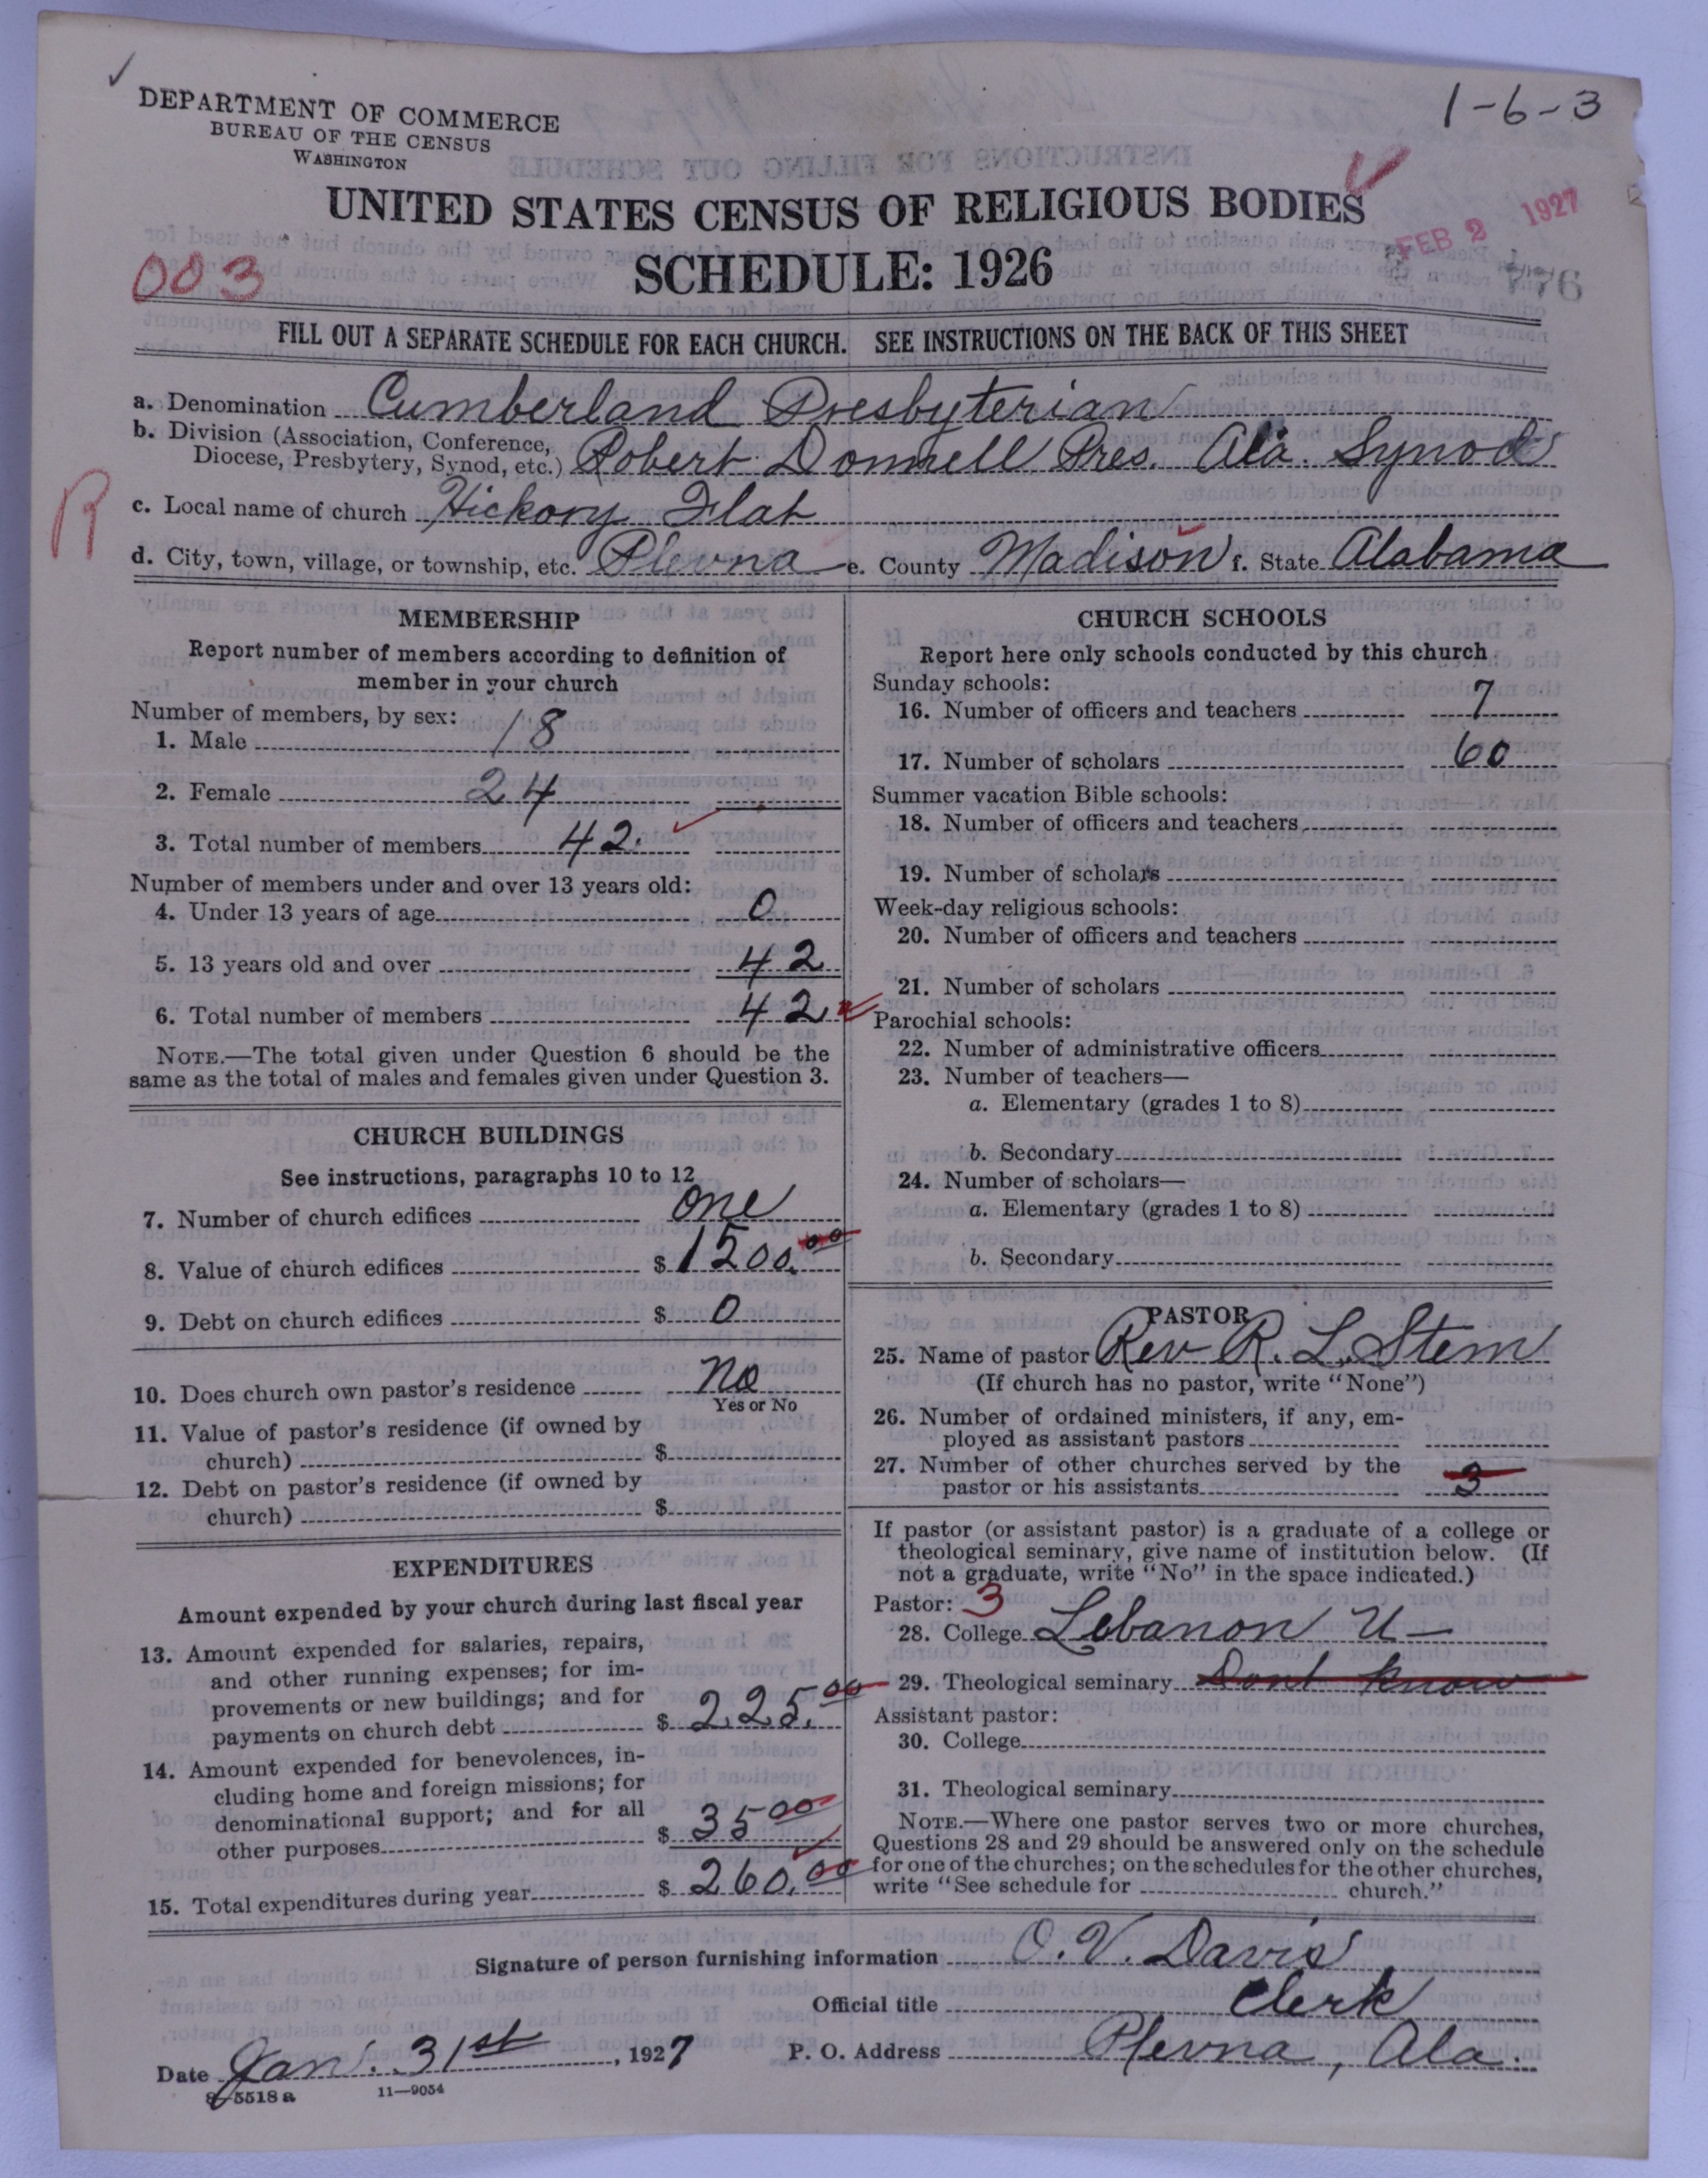 ✓
1-6-3
DEPARTMENT OF COMMERCE
BUREAU OF THE CENSUS
WASHINGTON
UNITED STATES CENSUS OF RELIGIOUS BODIES
FEB 2 1927
SCHEDULE: 1926
003
776
FILL OUT A SEPARATE SCHEDULE FOR EACH CHURCH. SEE INSTRUCTIONS ON THE BACK OF THIS SHEET
a. Denomination Cumberland Presbyterian
b. Division (Association, Conference,
Diocese, Presbytery, Synod, etc.) Robert Donnell Pres. Ala. Synod
R
c. Local name of church Hickory Flat
d. City, town, village, or township, etc. Plevna e. County Madison f. State Alabama
MEMBERSHIP
Report number of members according to definition of
member in your church
Number of members, by sex:
1. Male 18
2. Female 24
3. Total number of members 42.
Number of members under and over 13 years old:
4. Under 13 years of age 0
5. 13 years old and over 42
6. Total number of members 42
NOTE.—The total given under Question 6 should be the
same as the total of males and females given under Question 3.
CHURCH BUILDINGS
See instructions, paragraphs 10 to 12
7. Number of church edifices one
8. Value of church edifices $ 1500.00
9. Debt on church edifices $ 0
10. Does church own pastor's residence No
Yes or No
11. Value of pastor's residence (if owned by
church) $
12. Debt on pastor's residence (if owned by
church) $
EXPENDITURES
Amount expended by your church during last fiscal year
13. Amount expended for salaries, repairs,
and other running expenses; for im-
provements or new buildings; and for
payments on church debt $ 225.00
14. Amount expended for benevolences, in-
cluding home and foreign missions; for
denominational support; and for all
other purposes $ 35 00
15. Total expenditures during year $ 260.00
CHURCH SCHOOLS
Report here only schools conducted by this church
Sunday schools:
16. Number of officers and teachers 7
17. Number of scholars 60
Summer vacation Bible schools:
18. Number of officers and teachers
19. Number of scholars
Week-day religious schools:
20. Number of officers and teachers
21. Number of scholars
Parochial schools:
22. Number of administrative officers
23. Number of teachers—
a. Elementary (grades 1 to 8)
b. Secondary
24. Number of scholars—
a. Elementary (grades 1 to 8)
b. Secondary
PASTOR
25. Name of pastor Rev R. L. Stem
(If church has no pastor, write "None")
26. Number of ordained ministers, if any, em-
ployed as assistant pastors
27. Number of other churches served by the
pastor or his assistants 3
If pastor (or assistant pastor) is a graduate of a college or
theological seminary, give name of institution below. (If
not a graduate, write "No" in the space indicated.)
Pastor: 3
28. College Lebanon U—
29. Theological seminary Dont know
Assistant pastor:
30. College
31. Theological seminary
NOTE.—Where one pastor serves two or more churches,
Questions 28 and 29 should be answered only on the schedule
for one of the churches; on the schedules for the other churches,
write "See schedule for church."
Signature of person furnishing information O. V. Davis
Official title Clerk
Date Jan. 31st, 1927 P. O. Address Plevna, Ala.
8-5518 a 11—9054